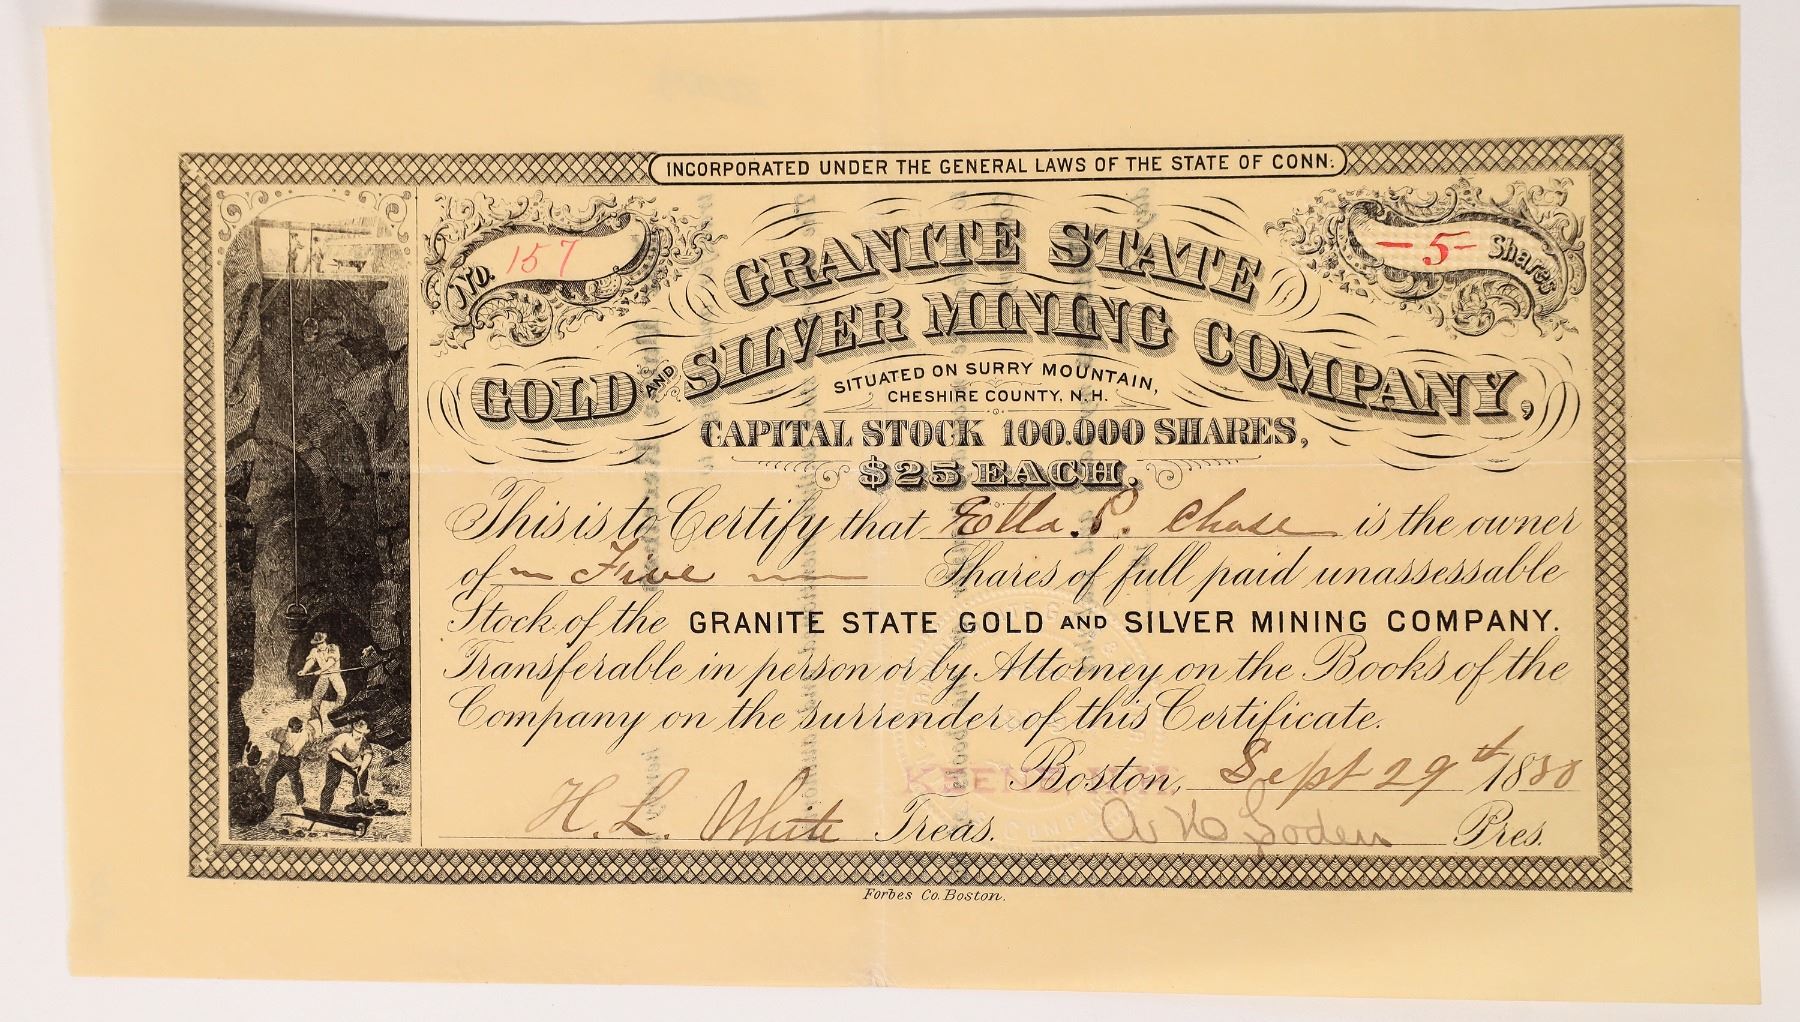 INCORPORATED UNDER THE GENERAL LAWS OF THE STATE OF CONN:
No. 157
- 5 - Shares
GRANITE STATE
GOLD AND SILVER MINING COMPANY,
SITUATED ON SURRY MOUNTAIN,
CHESHIRE COUNTY, N.H.
CAPITAL STOCK 100.000 SHARES,
$25 EACH.
This is to Certify that Etta. P. Chase is the owner
of Five Shares of full paid unassessable
Stock of the GRANITE STATE GOLD AND SILVER MINING COMPANY.
Transferable in person or by Attorney on the Books of the
Company on the surrender of this Certificate.
KEENE N.H. Boston, Sept 29th 1880
H. L. White Treas. Pres.
Forbes Co. Boston.